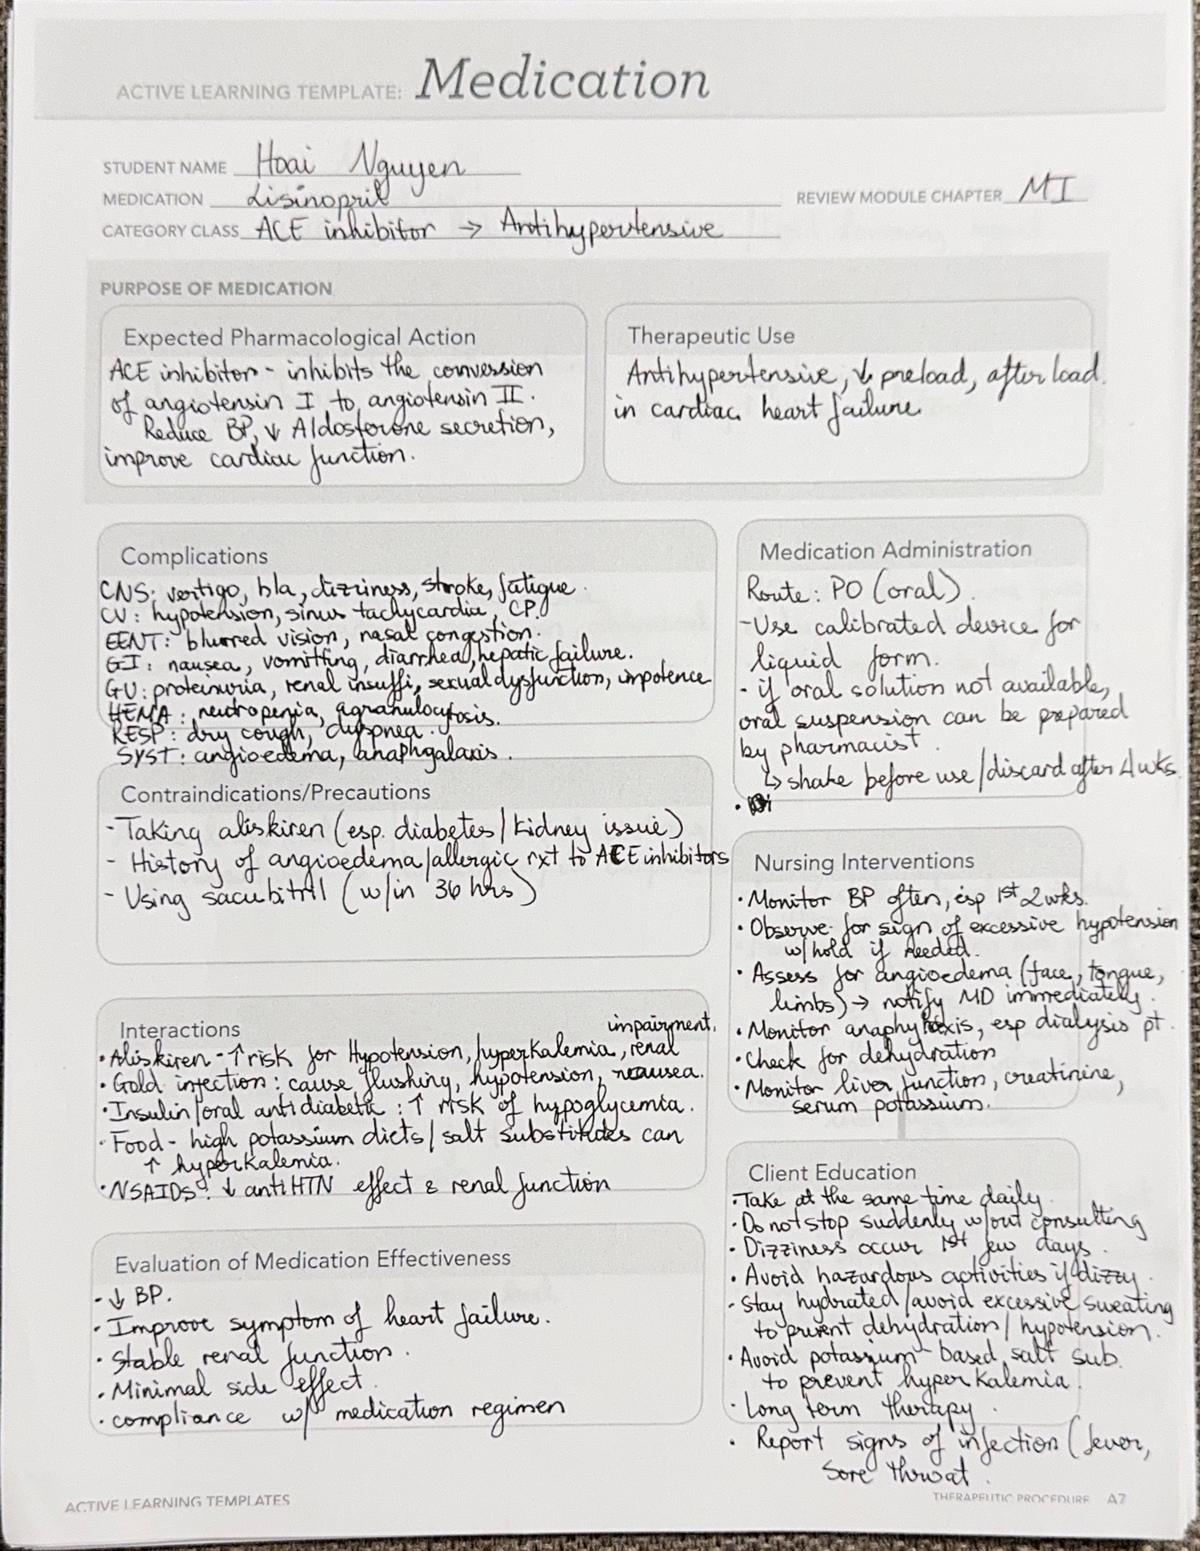 ACTIVE LEARNING TEMPLATE: Medication
STUDENT NAME Hoai Nguyen
MEDICATION Lisinopril
REVIEW MODULE CHAPTER MI
CATEGORY CLASS ACE inhibitor → Antihypertensive
PURPOSE OF MEDICATION
Expected Pharmacological Action
ACE inhibitor - inhibits the conversion
of angiotensin I to angiotensin II.
Reduce BP, ↓ Aldosterone secretion,
improve cardiac function.
Therapeutic Use
Antihypertensive, ↓ preload, after load.
in cardiac heart failure
Complications
CNS: vertigo, h/a, dizziness, stroke, fatigue.
CV: hypotension, sinus tachycardia, CP.
EENT: blurred vision, nasal congestion.
GI: nausea, vomitting, diarrhea, hepatic failure.
GU: proteinuria, renal insuffi, sexual dysfunction, impotence
HEMA: neutropenia, agranulocytosis.
RESP: dry cough, dyspnea.
SYST: angioedema, anaphgalaxis.
Contraindications/Precautions
- Taking aliskiren (esp. diabetes/kidney issue)
- History of angioedema/allergic rxt to ACE inhibitors
- Using sacubitril (w/in 36 hrs)
Interactions
• Aliskiren - ↑ risk for Hypotension, hyperkalemia, renal impairment.
• Gold injection: cause flushing, hypotension, nausea.
• Insulin/oral antidiabetic: ↑ risk of hypoglycemia.
• Food - high potassium diets/salt substitutes can
↑ hyperkalemia.
• NSAIDs: ↓ antiHTN effect & renal function
Evaluation of Medication Effectiveness
- ↓ BP.
• Improve symptom of heart failure.
• Stable renal function.
• Minimal side effect.
• compliance w/ medication regimen
Medication Administration
Route: PO (oral).
- Use calibrated device for
liquid form.
- if oral solution not available,
oral suspension can be prepared
by pharmacist.
↳ shake before use/discard after 4 wks.
Nursing Interventions
• Monitor BP often, esp 1st 2 wks.
• Observe for sign of excessive hypotension
w/hold if needed.
• Assess for angioedema (face, tongue,
limbs) → notify MD immediately.
• Monitor anaphylaxis, esp dialysis pt.
• Check for dehydration
• Monitor liver function, creatinine,
serum potassium.
Client Education
• Take at the same time daily.
• Do not stop suddenly w/out consulting
• Dizziness occur 1st few days.
• Avoid hazardous activities if dizzy.
- Stay hydrated/avoid excessive sweating
to prevent dehydration/hypotension.
• Avoid potassium-based salt sub.
to prevent hyperkalemia.
• Long term therapy.
• Report signs of infection (fever,
sore throat.
ACTIVE LEARNING TEMPLATES
THERAPEUTIC PROCEDURE A7